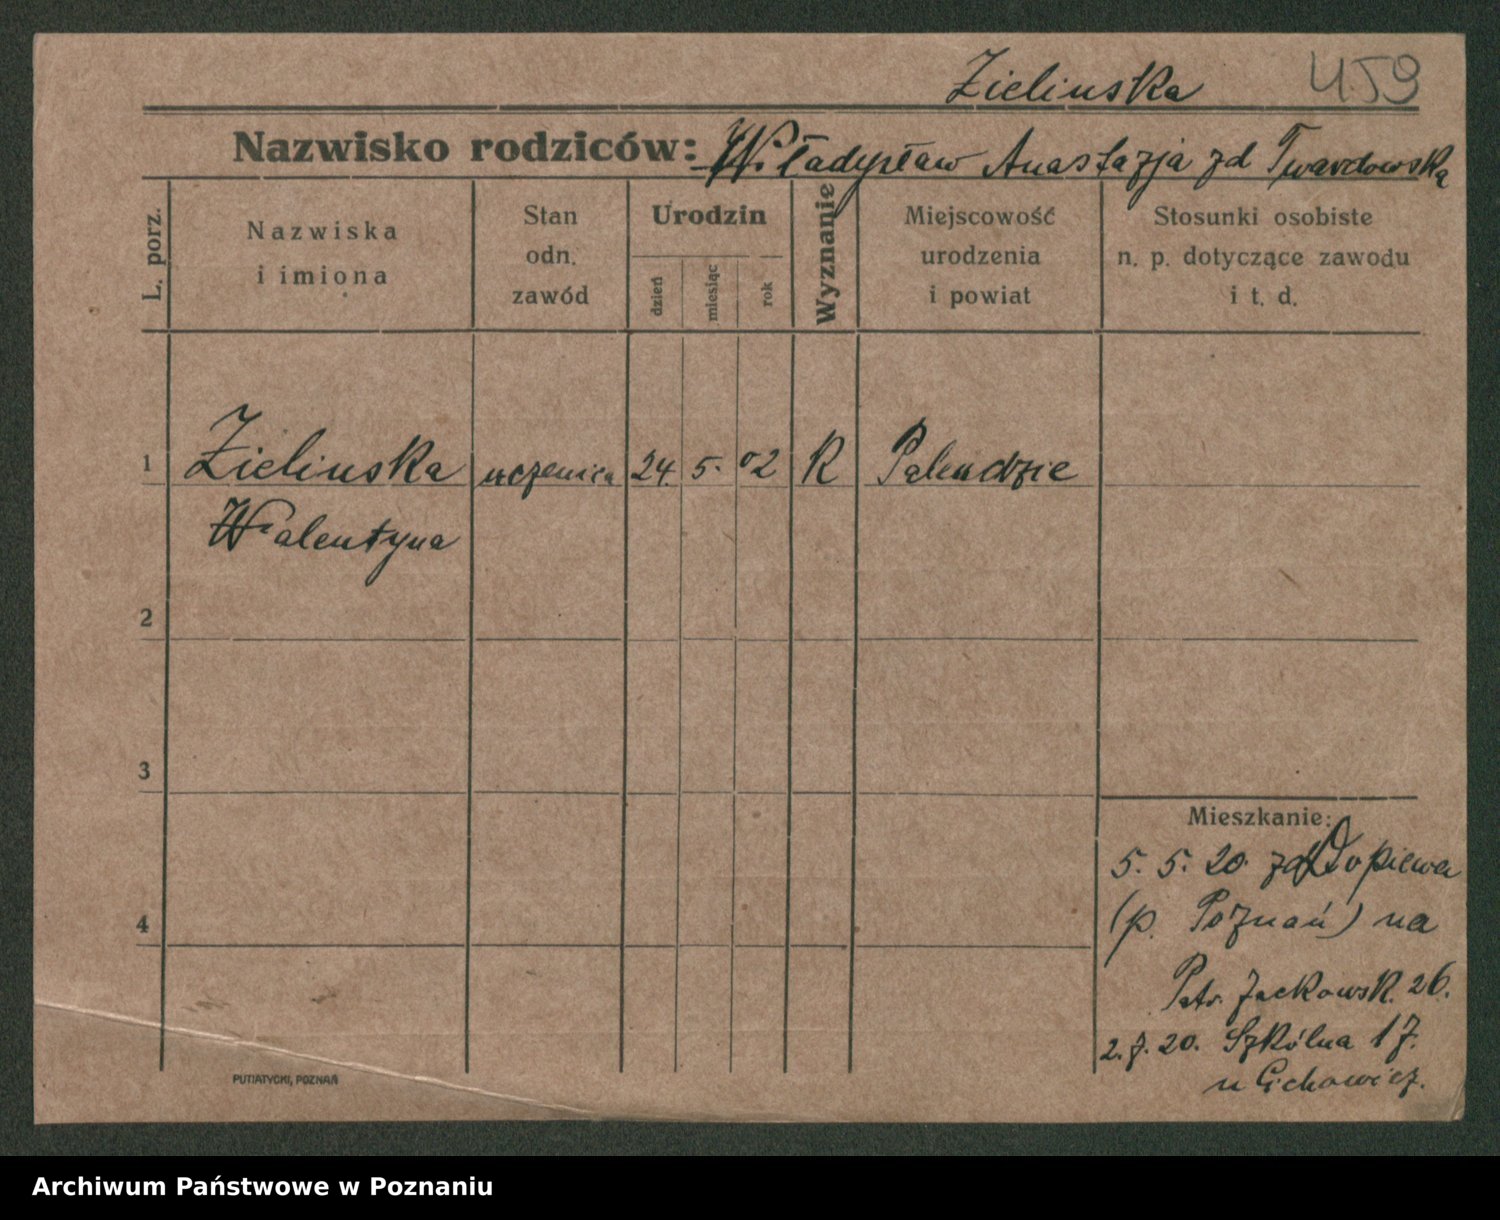 Zielinska 459
Nazwisko rodziców: Władysław Anastazja zd Twardowska
L. porz.
Nazwiska
i imiona
Stan
odn.
zawód
Urodzin
dzień
miesiąc
rok
Wyznanie
Miejscowość
urodzenia
i powiat
Stosunki osobiste
n. p. dotyczące zawodu
i t. d.
1 Zielinska uczenica 24. 5. 02 R Palendzie
Walentyna
2
3
4
Mieszkanie:
5. 5. 20. zd Dopiewa
(p. Poznań) na
Patr. Jackowsk. 26.
2. 7. 20. Szkólna 17.
u Cichowicz.
PUTIATYCKI, POZNAŃ
Archiwum Państwowe w Poznaniu